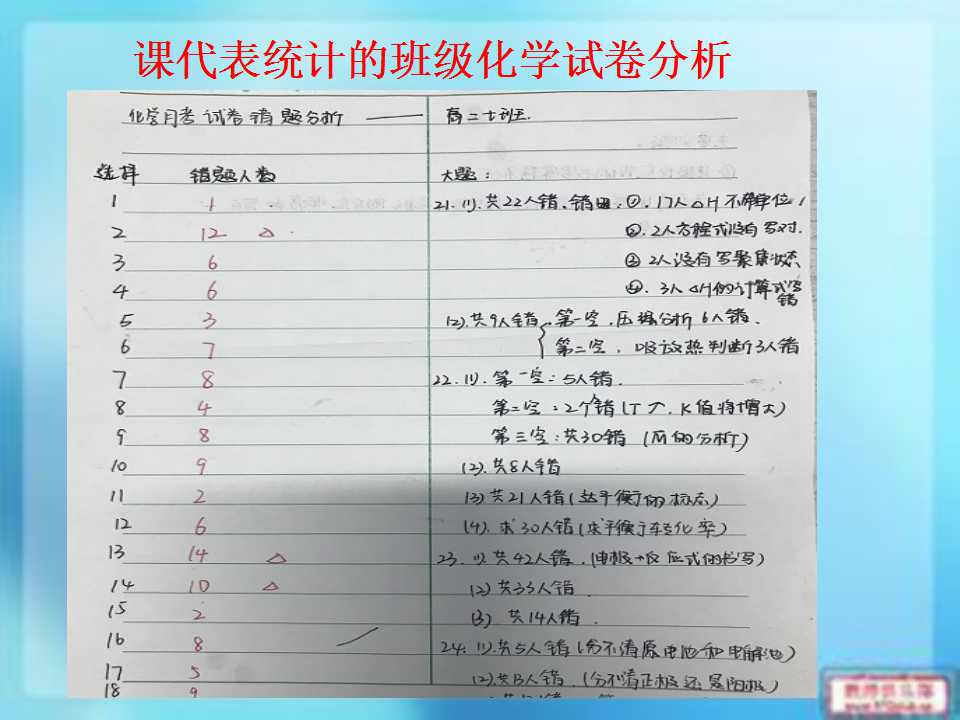 课代表统计的班级化学试卷分析
化学月考试卷错题分析 —— 高二十班.
选择 错题人数 大题:
1 1
2 12 △
3 6
4 6
5 3
6 7
7 8
8 4
9 8
10 9
11 2
12 6
13 14 △
14 10 △
15 2
16 8
17 5
18 9
21. (1). 共22人错. 错因. ①. 17人△H 不带单位,
②. 2人方程式没有写对.
③ 2人没有写聚集状态
④. 3人 △H的计算式写错
(2). 共9人错 第一空. 压强分析6人错.
第二空. 吸放热判断3人错
22. (1). 第一空: 5人错.
第二空: 2个错 (T↗. K值将增大)
第三空: 共30错 (的分析)
(2). 共8人错
(3) 共21人错 (达平衡的标志)
(4). 求30人错 (求平衡转化率)
23. (1) 共42人错. (电极反应式的书写)
(2) 共33人错
(3) 共14人错.
24. (1). 共5人错 (分不清原电池和电解池)
(2). 共13人错. (分不清正极还是阳极)